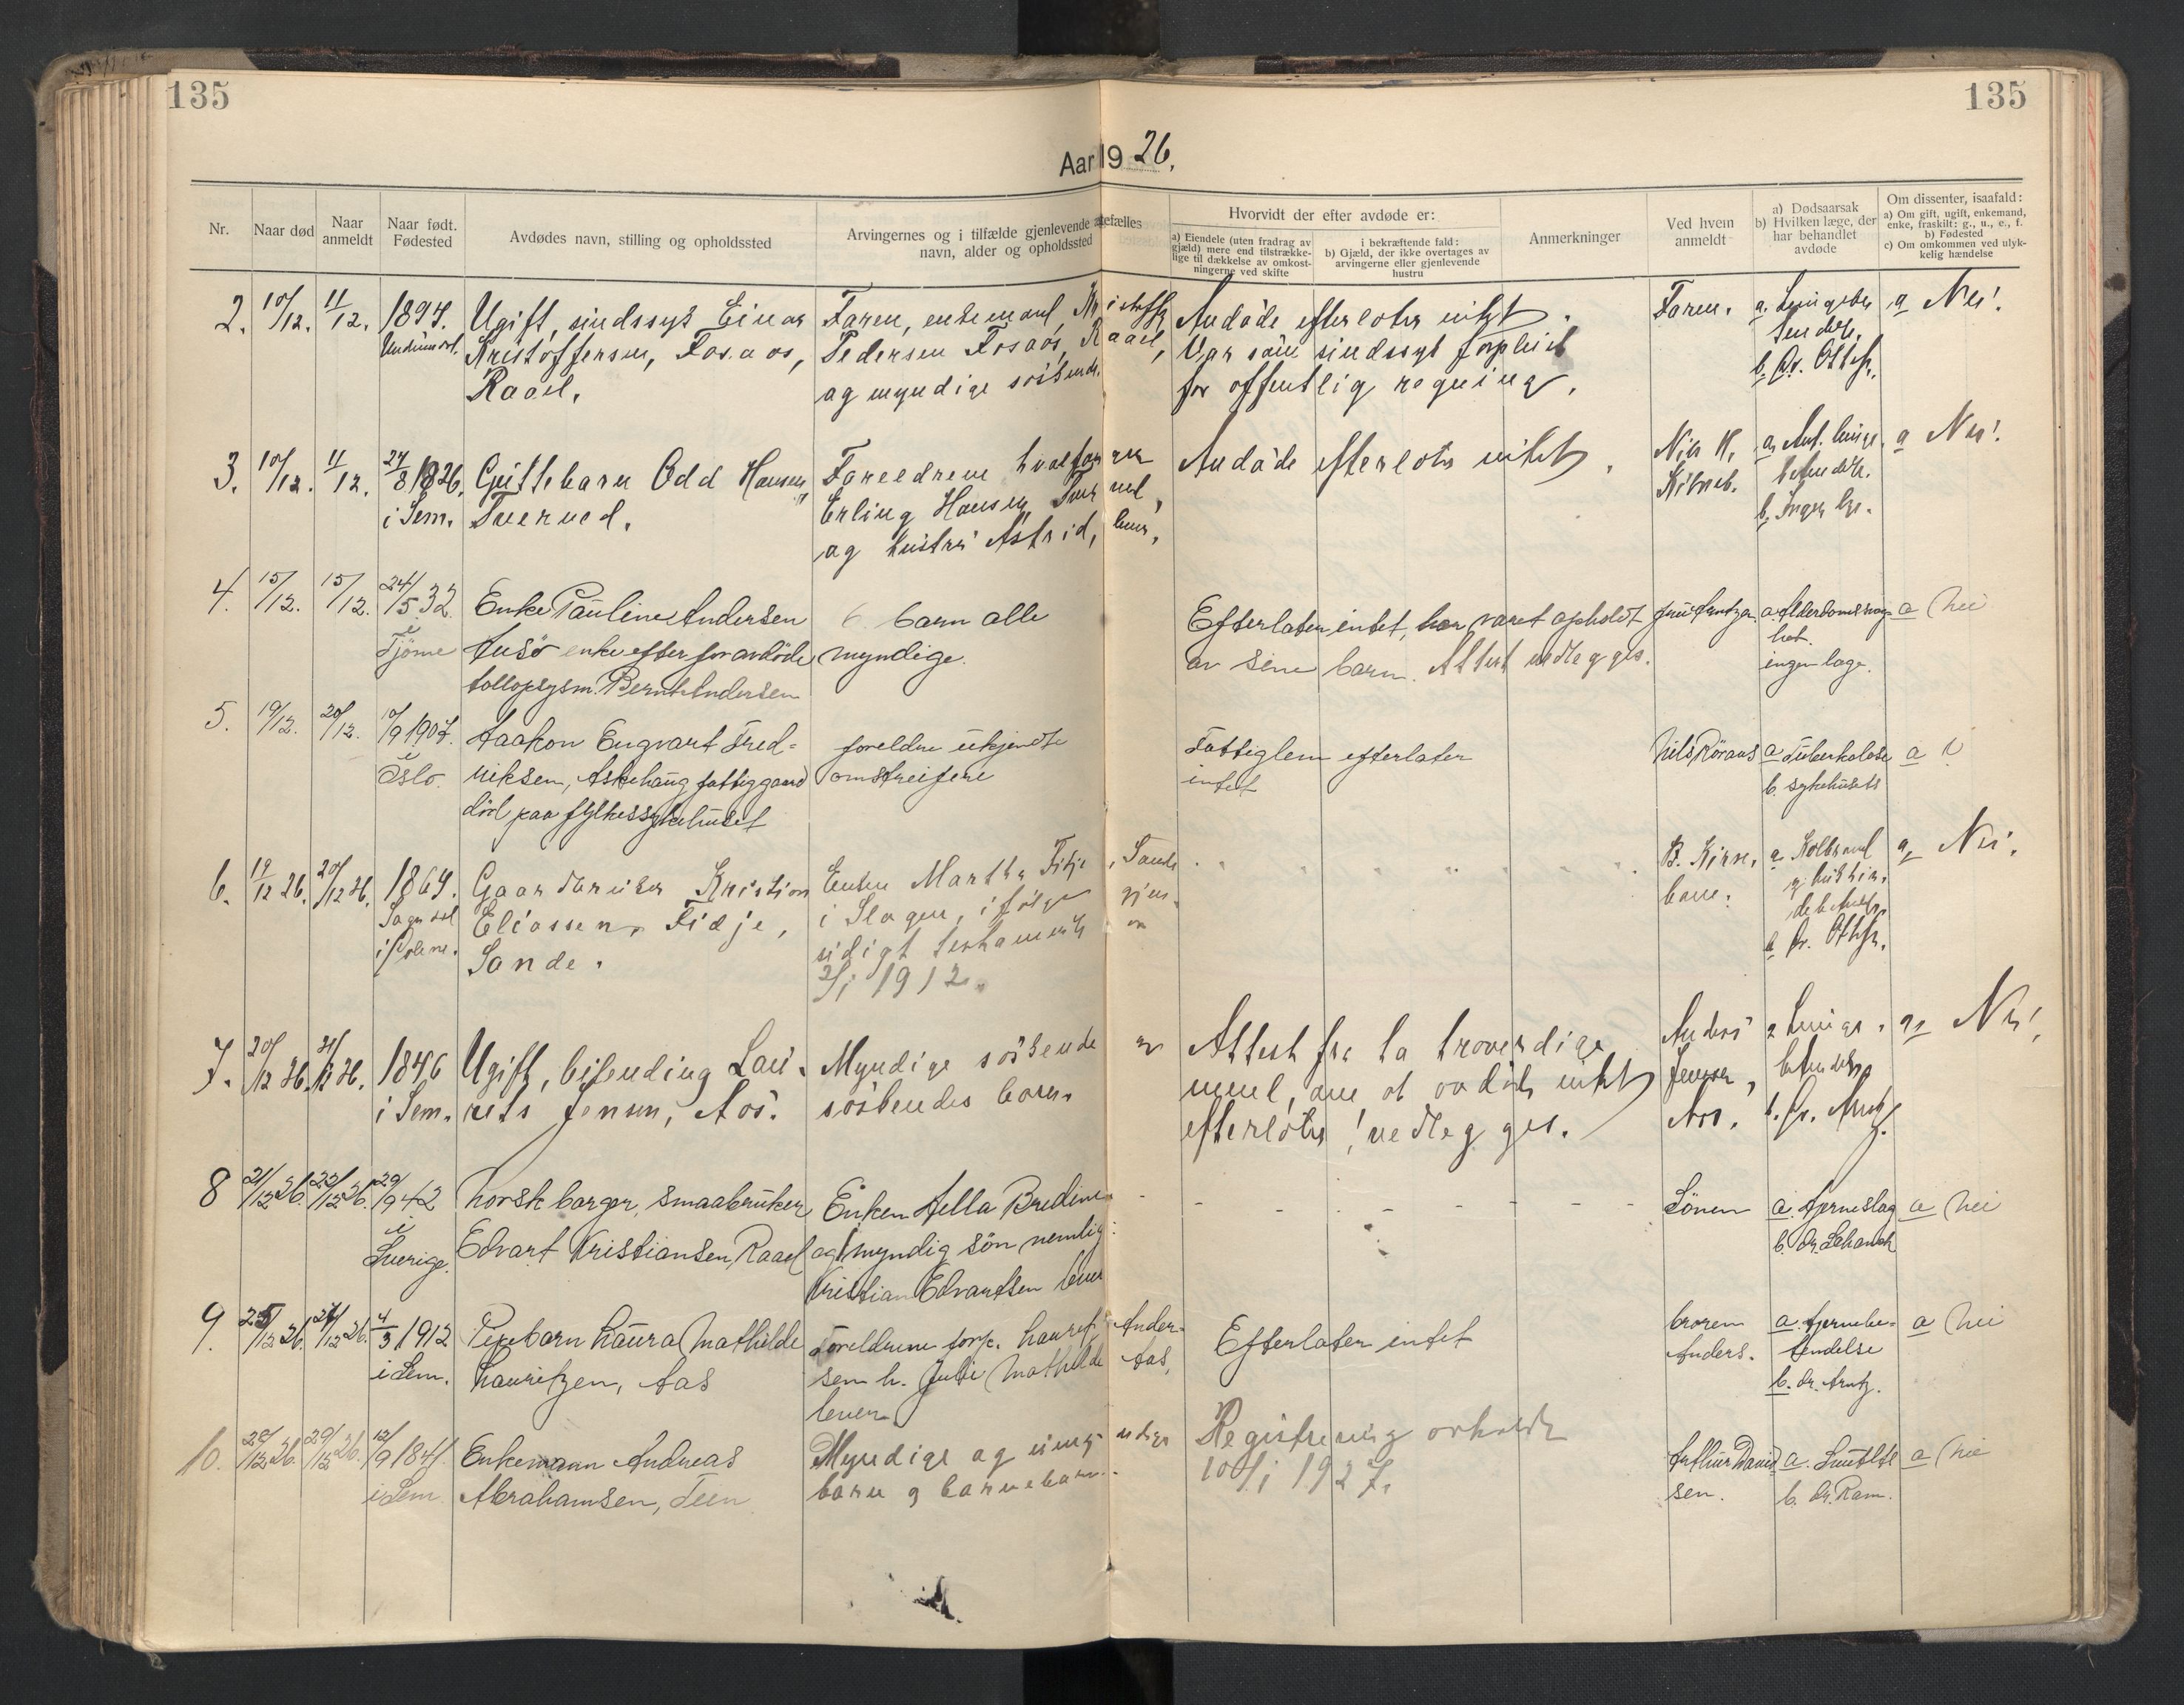 135
135
Aar 1926.
Nr.
Naar død
Naar anmeldt
Naar født. Fødested
Avdødes navn, stilling og opholdssted
Arvingernes og i tilfælde gjenlevende ægtefælles
navn, alder og opholdssted
Hvorvidt der efter avdøde er:
a) Eiendele (uten fradrag av
gjæld) mere end tilstrække-
lige til dækkelse av omkost-
ningerne ved skifte
i bekræftende fald:
b) Gjæld, der ikke overtages av
arvingerne eller gjenlevende
hustru
Anmerkninger
Ved hvem
anmeldt
a) Dødsaarsak
b) Hvilken læge, der
har behandlet
avdøde
Om dissenter, isaafald:
a) Om gift, ugift, enkemand,
enke, fraskilt: g., u., e., f.
b) Fødested
c) Om omkommen ved ulyk-
kelig hændelse
2. 10/12. 11/12. 1894.
Ugift, sindssyk Einar
Kristoffersen, Fosaas,
Raael.
Faren, enkemand
Pedersen Fosaas, Raael,
og myndige søskende.
Avdøde efterlater intet.
Var som sindssyk forpleiet
for offentlig regning.
Faren.
b. Dr.
a Nei.
3. 10/12. 11/12. 24/8 1926.
i Sem.
Guttebarn Odd Hansen
Tverved.
Foreldrene
Erling Hansen
og hustru Astrid, lever.
Avdøde efterlater intet.
b. Ingen læge.
a Nei.
4. 15/12. 15/12. 24/5 32.
i
Tjøme
Enke Pauline Andersen
Husø enke efter foravdøde
Bernt Andersen
6 barn alle
myndige.
Efterlater intet, har været opholdt
av sine barn. Attest vedlegges.
a. Alderdomssvag-
het.
ingen læge.
a Nei
5. 19/12. 20/12. 10/9 1907.
i
Oslo.
Haakon Engvart Fred-
riksen, Askehaug fattiggaard
död paa fylkessykehuset
foreldre ukjendte
omstreifere
Fattiglem efterlater
intet
Nils Röraas
a Tuberkulose
b. sykehusets
a
6. 19/12 26. 20/12 26. 1864.
Gaardbruker Kristian
Eliassen, Fidje,
Sande.
Enken Martha Fidje, Sande
i Slagen, ifølge gjen-
sidigt testamente av
2/1 1912.
a Nei.
7. 20/12 26. 21/12 26. 1846
i Sem.
Ugift, Lau-
rits Jensen, Aas.
Myndige søskende og
søskendes barn.
Attest fra to troverdige
menn, om at avdøde intet
efterlater, vedlegges.
Anders
Jensen,
Aas.
a Nei!
8 21/12 26. 22/12 26. 29/9 42
i
Sverige.
Norsk borger, smaabruker
Edvart Kristiansen, Raael
Enken Hella Bredine
og 1 myndig sön nemlig:
Kristian Edvartsen lever
Sönen
a. Hjerneslag
b. dr.
a Nei
9. 25/12 26. 27/12 26. 4/3 1912
i Sem.
Pigebarn Laura Mathilde
Lauritzen, Aas
Foreldrene forp. Laurits Ander-
sen h. Julie Mathilde Aas,
lever
Efterlater intet
broren
Anders.
a. Hjernebe-
tendelse
b. dr. Arntz.
a Nei
10. 28/12 26. 29/12 26. 12/9 1847.
i Sem
Enkemann Andreas
Abrahamsen, Teen
Myndige og umyndige
barn og barnebarn.
Registrering avholdt
10/1 1927.
Arthur David-
sen.
b. dr. Ram.
a Nei